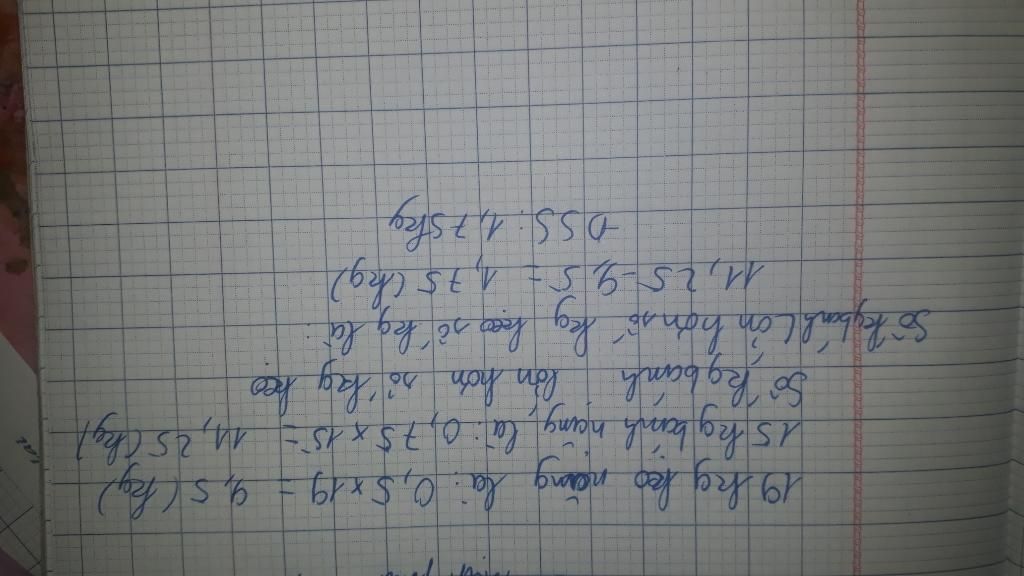 19 kg kẹo nặng là: 0,5 x 19 = 9,5 (kg)
15 kg bánh nặng là: 0,75 x 15 = 11,25 (kg)
Số kg bánh lớn hơn số kg kẹo
Số kg bánh Lớn hơn số kg kẹo số kg là:
11,25 - 9,5 = 1,75 (kg)
ĐSS: 1,75kg